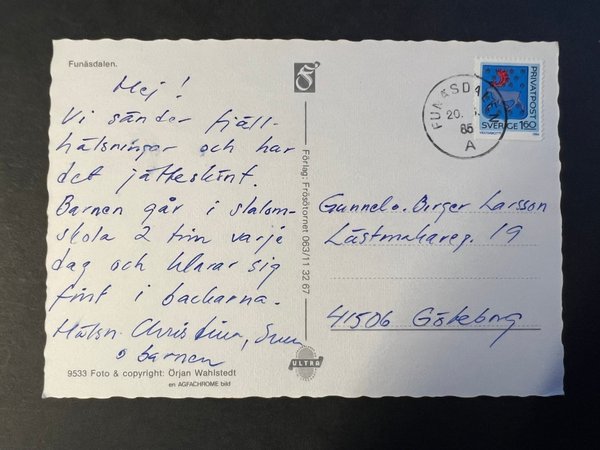 Funäsdalen.
Hej!
Vi sänder fjäll-
hälsningar och har
det jätteskönt.
Barnen går i slalom-
skola 2 tim varje
dag och klarar sig
fint i backarna.
Hälsn. Christina, Sven
o barnen
9533 Foto & copyright: Örjan Wahlstedt
en AGFACHROME bild
Förlag: Frösötornet 063/11 32 67
ULTRA
FUNÄSDALEN
20.
86
A
PRIVATPOST
SVERIGE 160
Gunnel o. Birger Larsson
Lästmakareg. 19
41506 Göteborg